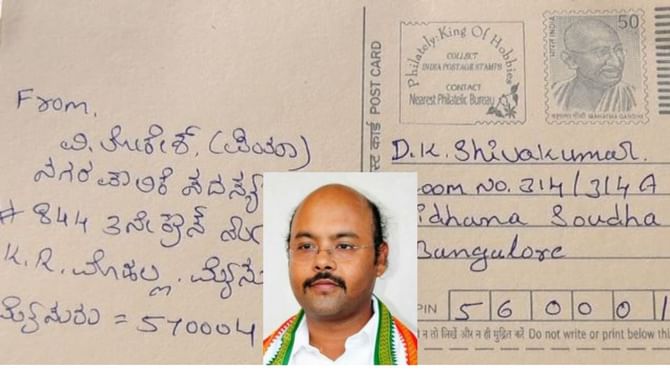 From,
ವಿ. ಲೋಕೇಶ್. (ಪಿಯಾ)
ನಗರ ಪಾಲಿಕೆ ಸದಸ್ಯ
# 844 3ನೇ ಕ್ರಾಸ್
K.R. ಮೊಹಲ್ಲ. ಮೈಸೂ
ಮೈಸೂರು = 570004
POST CARD
Philately: King Of Hobbies
COLLECT
INDIA POSTAGE STAMPS
CONTACT
Nearest Philatelic Bureau
50
भारत INDIA
महात्मा गाँधी MAHATMA GANDHI
D.K. Shivakumar.
oom No. 314/314 A
idhana Soudha
Bangalore
PIN 56000
न तो लिखें और न ही मुद्रित करें Do not write or print below this